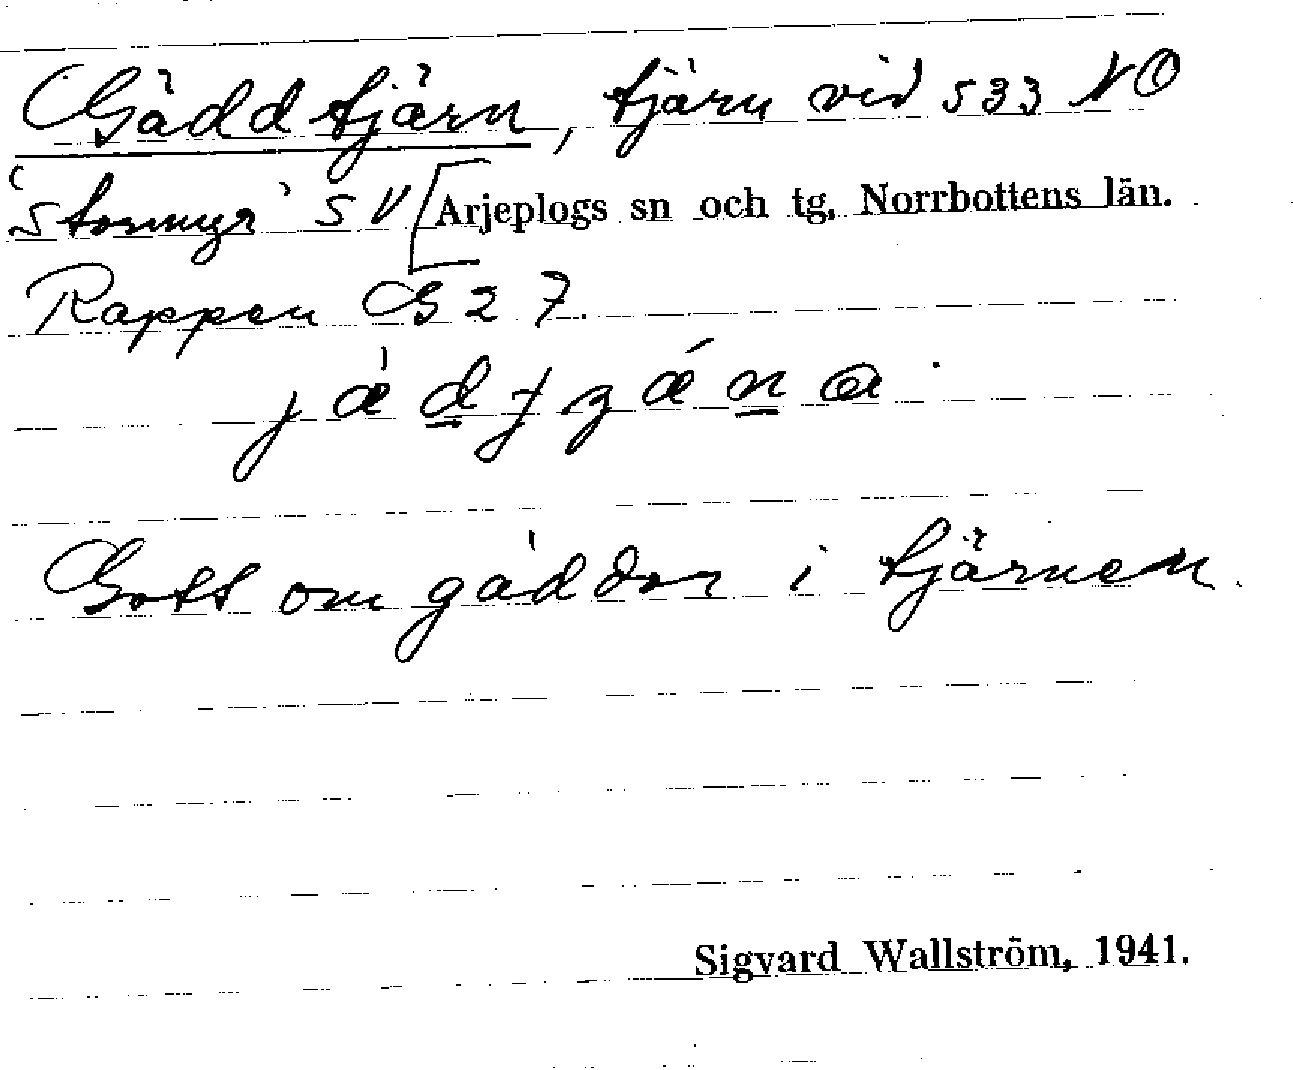 Gäddtjärn, tjärn vid 533 NO
'Stormyr' SV [Arjeplogs sn och tg, Norrbottens län.
Rappen G 2 7.
Gott om gäddor i tjärnen.
Sigvard Wallström, 1941.